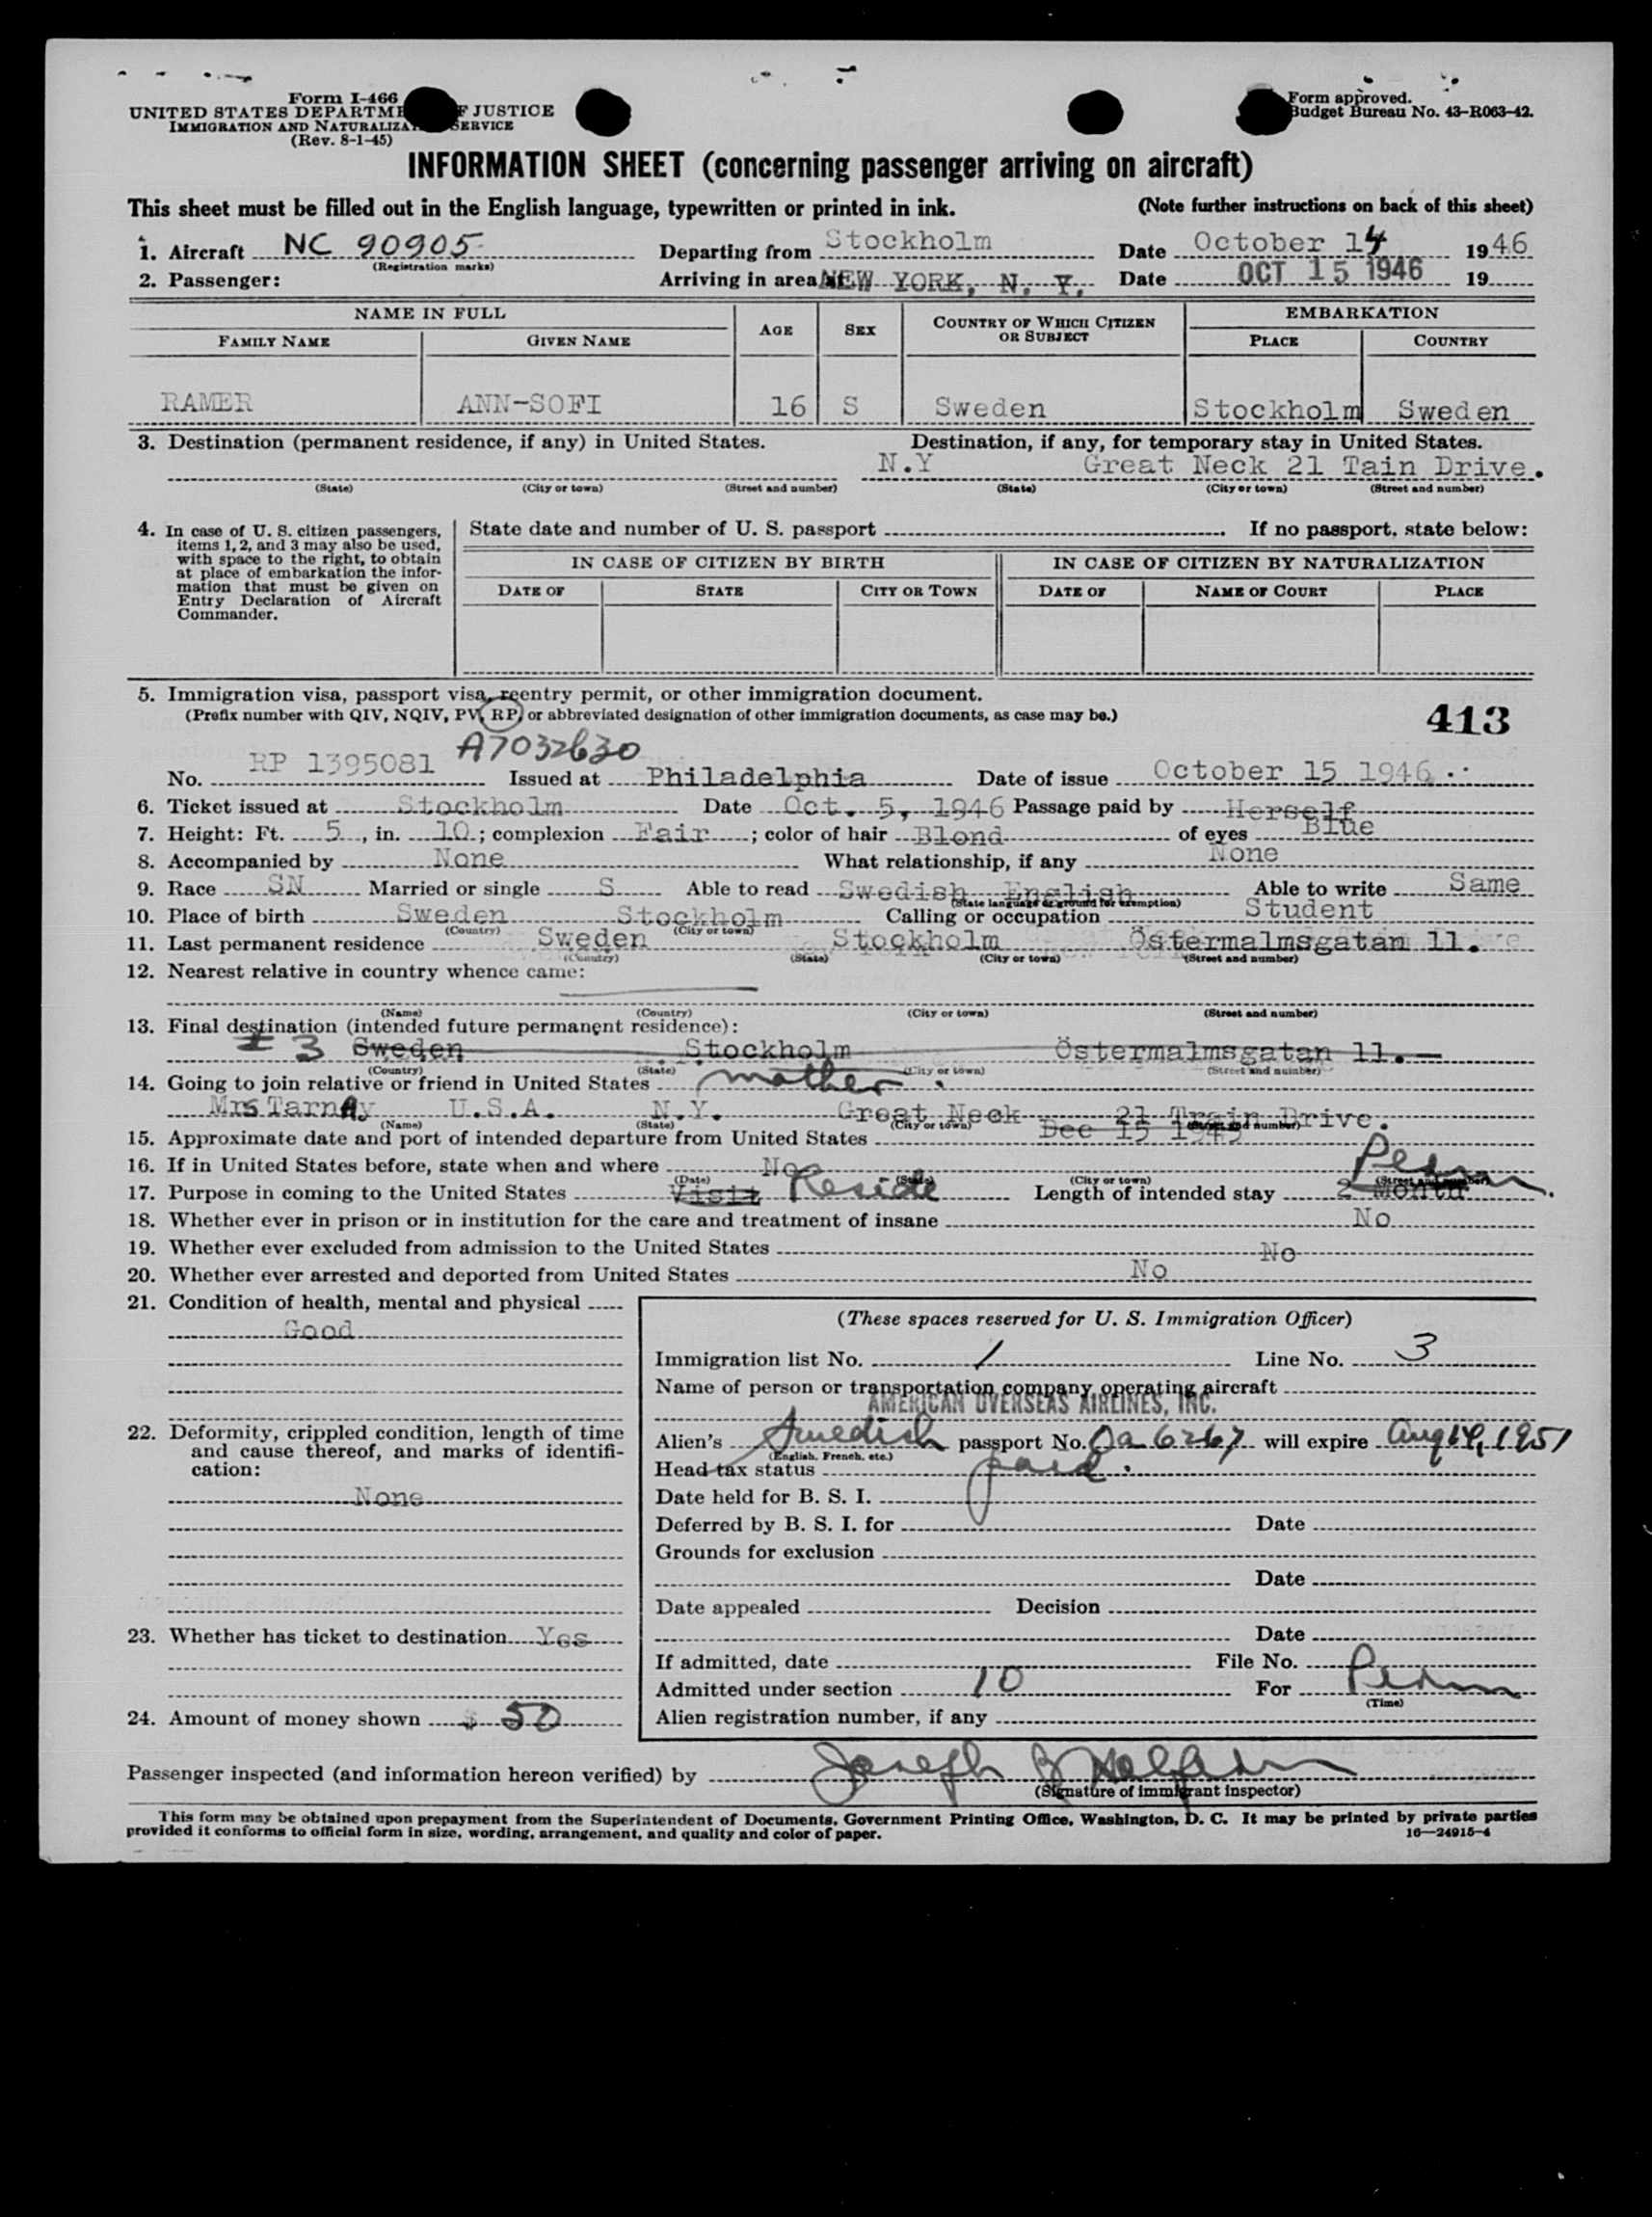 Form I-466
UNITED STATES DEPARTME F JUSTICE
IMMIGRATION AND NATURALIZA SERVICE
(Rev. 8-1-45)
Form approved.
Budget Bureau No. 43-R063-42.
INFORMATION SHEET (concerning passenger arriving on aircraft)
This sheet must be filled out in the English language, typewritten or printed in ink. (Note further instructions on back of this sheet)
1. Aircraft NC 90905 Departing from Stockholm Date October 14 1946
(Registration marks)
2. Passenger: Arriving in area at NEW YORK, N. Y. Date OCT 15 1946 19
NAME IN FULL AGE SEX COUNTRY OF WHICH CITIZEN OR SUBJECT EMBARKATION
FAMILY NAME GIVEN NAME PLACE COUNTRY
RAMER ANN-SOFI 16 S Sweden Stockholm Sweden
3. Destination (permanent residence, if any) in United States. Destination, if any, for temporary stay in United States.
N.Y Great Neck 21 Tain Drive.
(State) (City or town) (Street and number) (State) (City or town) (Street and number)
4. In case of U. S. citizen passengers, items 1, 2, and 3 may also be used, with space to the right, to obtain at place of embarkation the information that must be given on Entry Declaration of Aircraft Commander.
State date and number of U. S. passport . If no passport, state below:
IN CASE OF CITIZEN BY BIRTH IN CASE OF CITIZEN BY NATURALIZATION
DATE OF STATE CITY OR TOWN DATE OF NAME OF COURT PLACE
5. Immigration visa, passport visa, reentry permit, or other immigration document.
(Prefix number with QIV, NQIV, PV, RP, or abbreviated designation of other immigration documents, as case may be.)
413
A7032630
No. RP 1395081 Issued at Philadelphia Date of issue October 15 1946
6. Ticket issued at Stockholm Date Oct. 5, 1946 Passage paid by Herself
7. Height: Ft. 5, in. 10; complexion Fair; color of hair Blond of eyes Blue
8. Accompanied by None What relationship, if any None
9. Race SN Married or single S Able to read Swedish English Able to write Same
(State language or ground for exemption)
10. Place of birth Sweden Stockholm Calling or occupation Student
(Country) (City or town)
11. Last permanent residence Sweden Stockholm Östermalmsgatan 11.
(Country) (State) (City or town) (Street and number)
12. Nearest relative in country whence came:
(Name) (Country) (City or town) (Street and number)
13. Final destination (intended future permanent residence):
# 3 Sweden Stockholm Östermalmsgatan 11.
(Country) (State) (City or town) (Street and number)
14. Going to join relative or friend in United States mother.
Mrs Tarnay U.S.A. N.Y. Great Neck 21 Train Drive.
(Name) (State) (City or town) (Street and number)
15. Approximate date and port of intended departure from United States Dec 15 1945
16. If in United States before, state when and where No
(Date) (State) (City or town) (Street and number)
17. Purpose in coming to the United States Visit Reside Length of intended stay 2 Month Perm.
18. Whether ever in prison or in institution for the care and treatment of insane No
19. Whether ever excluded from admission to the United States No
20. Whether ever arrested and deported from United States No
21. Condition of health, mental and physical
Good
22. Deformity, crippled condition, length of time and cause thereof, and marks of identification:
None
23. Whether has ticket to destination Yes
24. Amount of money shown $ 50
(These spaces reserved for U. S. Immigration Officer)
Immigration list No. 1 Line No. 3
Name of person or transportation company operating aircraft
AMERICAN OVERSEAS AIRLINES, INC.
Alien's Swedish passport No. Oa 6267 will expire Aug 19, 1951
(English, French, etc.)
Head tax status paid.
Date held for B. S. I.
Deferred by B. S. I. for Date
Grounds for exclusion
Date
Date appealed Decision
Date
If admitted, date File No.
Admitted under section 10 For Perm
(Time)
Alien registration number, if any
Passenger inspected (and information hereon verified) by Joseph
(Signature of immigrant inspector)
This form may be obtained upon prepayment from the Superintendent of Documents, Government Printing Office, Washington, D. C. It may be printed by private parties
provided it conforms to official form in size, wording, arrangement, and quality and color of paper. 16—24915-4